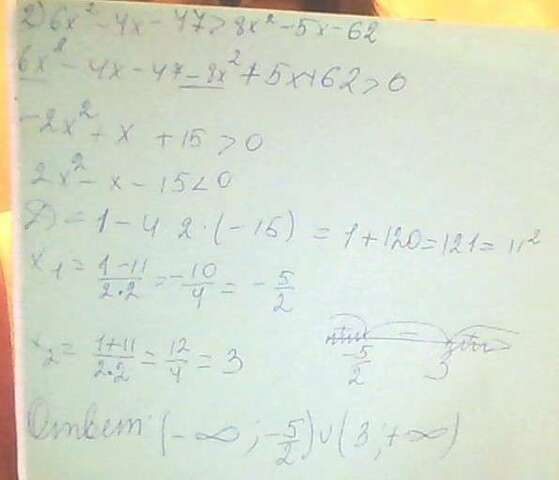 2) 6x² - 4x - 47 > 8x² - 5x - 62
6x² - 4x - 47 - 8x² + 5x + 62 > 0
-2x² + x + 15 > 0
2x² - x - 15 < 0
D = 1 - 4 2 · (-15) = 1 + 120 = 121 = 11²
x₁ = (1-11)/(2·2) = -10/4 = -5/2
x₂ = (1+11)/(2·2) = 12/4 = 3
-5/2 - 3
Ответ: (-∞; -5/2) ∪ (3; +∞)